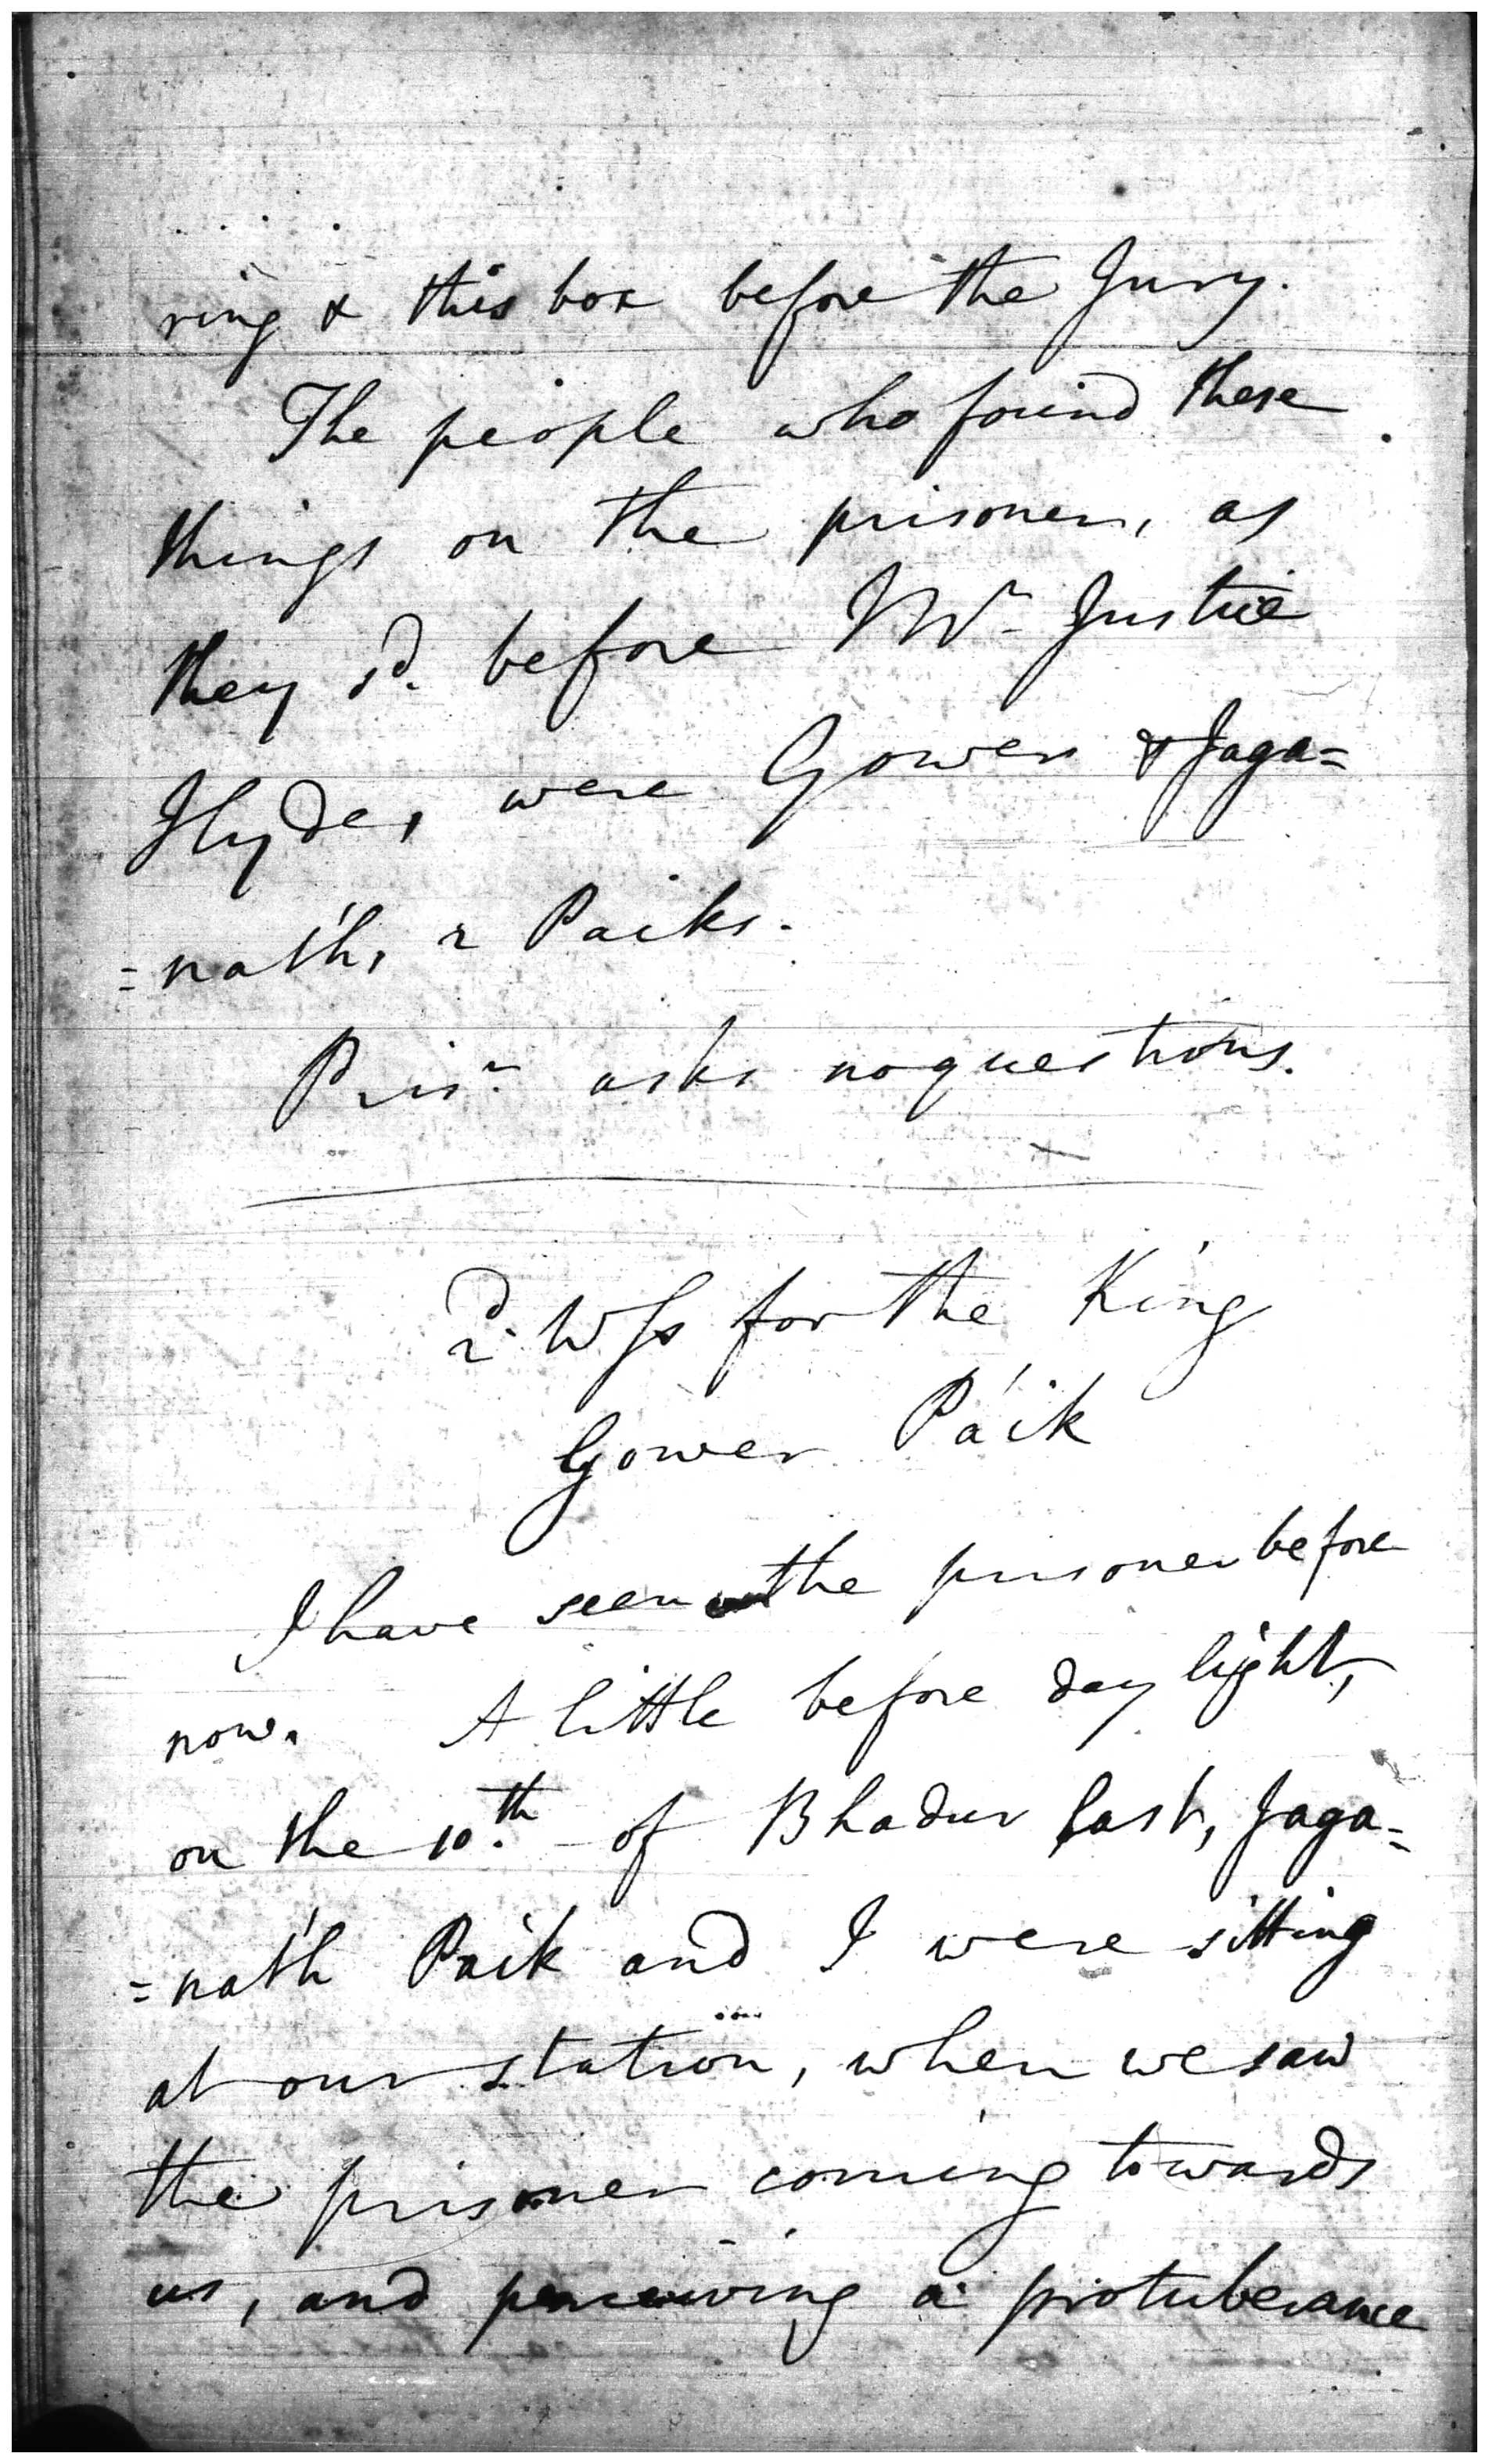 ring & this box before the Jury.
The people who found these
things on the prisoner, as
they sd. before Mr Justice
Hyde, were Gower & Jaga=
=nath, 2 Paiks.
Prisr. asks no questions.
2d. Wss for the King
Gower Páik
I have seen the prisoner before
now. A little before day light,
on the 10.th of Bhadur last, Jaga=
=nath Paik and I were sitting
at our station, when we saw
the prisoner coming towards
us, and perceiving a protuberance